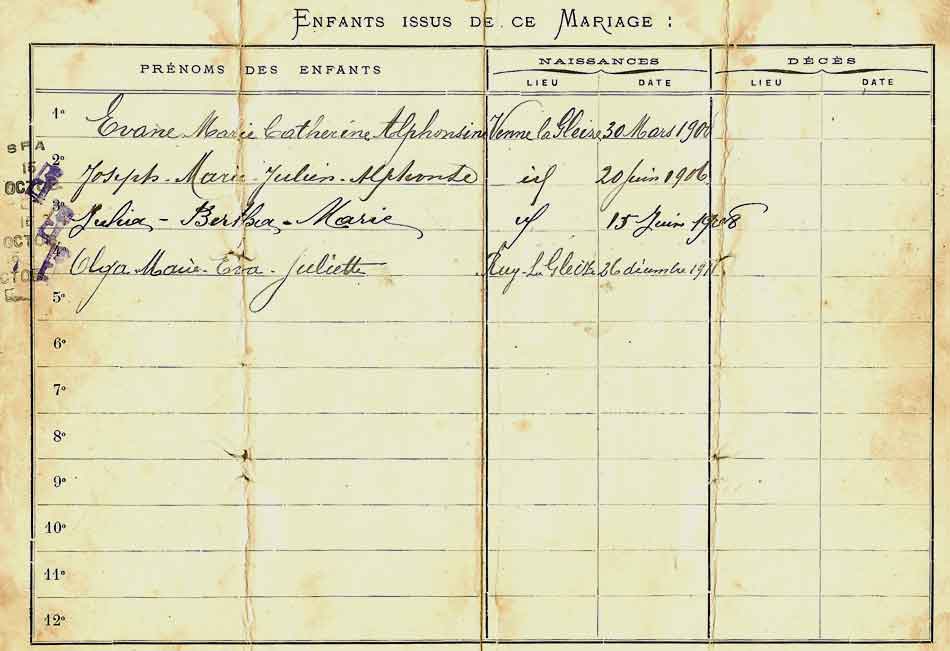 ENFANTS ISSUS DE CE MARIAGE :
PRÉNOMS DES ENFANTS NAISSANCES DÉCÈS
LIEU DATE LIEU DATE
1º Evane Marie Catherine Alphonsine Venne La Gleize 30 Mars
2º Joseph - Marie - Julien - Alphonse id 20 Juin 1906
3º Julia - Bertha - Marie id 15 Juin 1908
Olga Marie - Eva - Juliette Ruy - La Gleize 26 décembre
5º
6º
7º
8º
9º
10º
11º
12º
SPA
15
OCTO
OCTOB